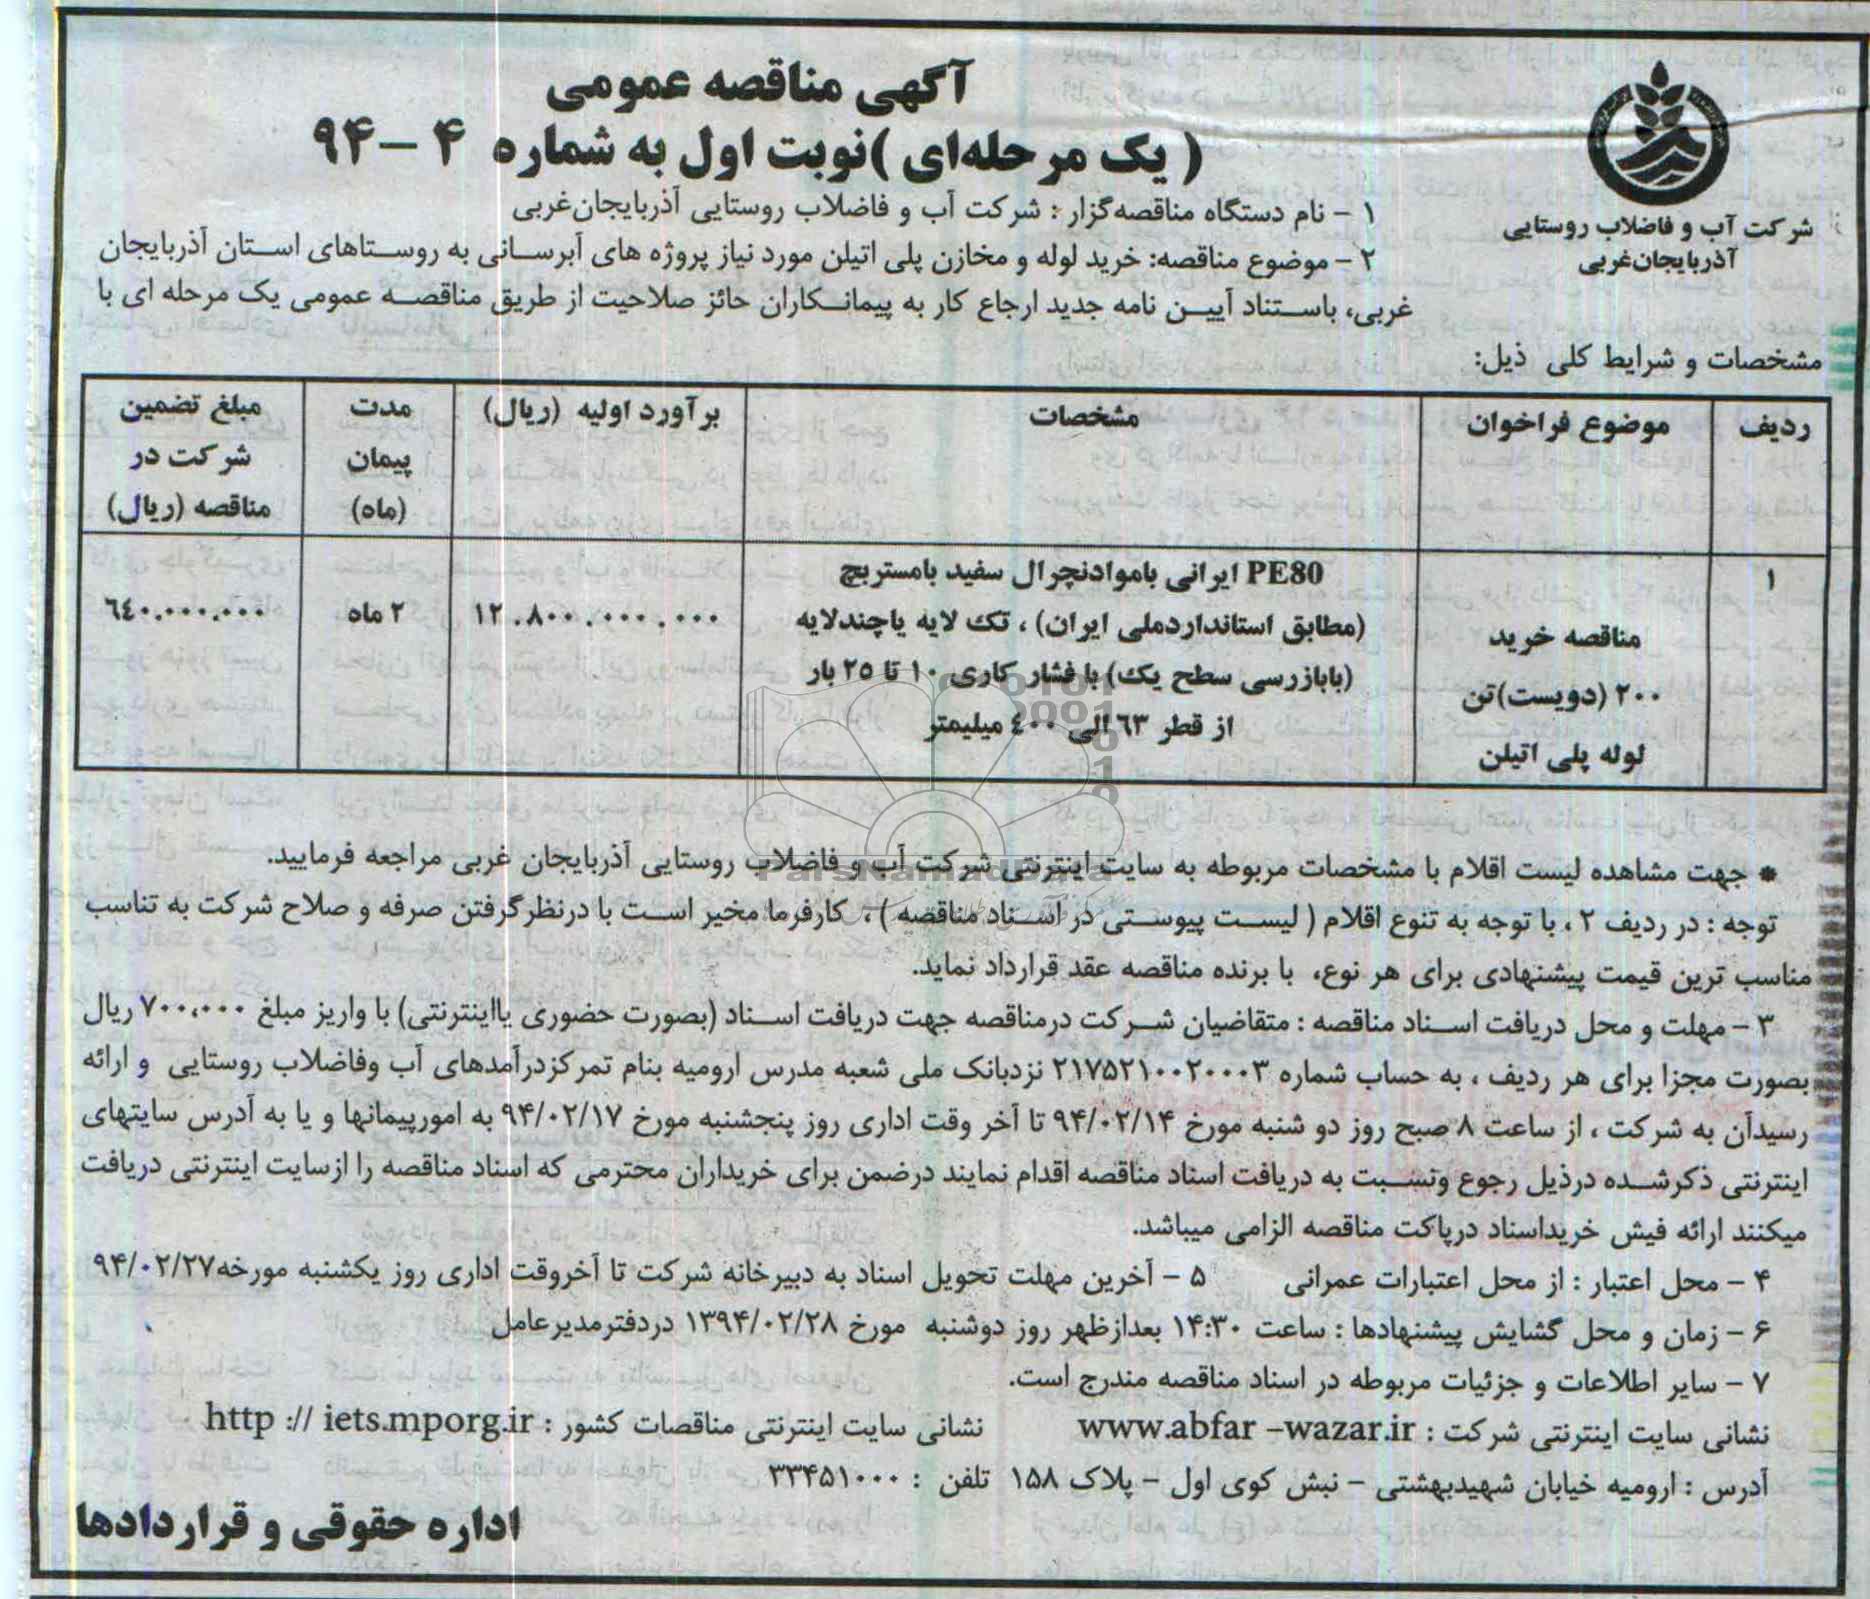 آگهی مناقصه عمومی
( یک مرحله‌ای )نوبت اول به شماره ۴ – ۹۴
شرکت آب و فاضلاب روستایی
آذربایجان‌غربی
۱ – نام دستگاه مناقصه‌گزار : شرکت آب و فاضلاب روستایی آذربایجان‌غربی
۲ – موضوع مناقصه: خرید لوله و مخازن پلی اتیلن مورد نیاز پروژه های آبرسانی به روستاهای استان آذربایجان
غربی، باستناد آیین نامه جدید ارجاع کار به پیمانکاران حائز صلاحیت از طریق مناقصه عمومی یک مرحله ای با
مشخصات و شرایط کلی ذیل:
ردیف
موضوع فراخوان
مشخصات
برآورد اولیه (ریال)
مدت
پیمان
(ماه)
مبلغ تضمین
شرکت در
مناقصه (ریال)
۱
مناقصه خرید
۲۰۰ (دویست)تن
لوله پلی اتیلن
PE80 ایرانی باموادنچرال سفید بامستربچ
(مطابق استانداردملی ایران) ، تک لایه یاچندلایه
(بابازرسی سطح یک) با فشار کاری ۱۰ تا ۲۵ بار
از قطر ۶۳ الی ۴۰۰ میلیمتر
۱۲.۸۰۰.۰۰۰.۰۰۰
۲ ماه
۶۴۰.۰۰۰.۰۰۰
* جهت مشاهده لیست اقلام با مشخصات مربوطه به سایت اینترنتی شرکت آب و فاضلاب روستایی آذربایجان غربی مراجعه فرمایید.
توجه : در ردیف ۲ ، با توجه به تنوع اقلام ( لیست پیوستی در اسناد مناقصه ) ، کارفرما مخیر است با درنظرگرفتن صرفه و صلاح شرکت به تناسب
مناسب ترین قیمت پیشنهادی برای هر نوع، با برنده مناقصه عقد قرارداد نماید.
۳ – مهلت و محل دریافت اسناد مناقصه : متقاضیان شرکت درمناقصه جهت دریافت اسناد (بصورت حضوری یااینترنتی) با واریز مبلغ ۷۰۰،۰۰۰ ریال
بصورت مجزا برای هر ردیف ، به حساب شماره ۲۱۷۵۲۱۰۰۲۰۰۰۳ نزدبانک ملی شعبه مدرس ارومیه بنام تمرکزدرآمدهای آب وفاضلاب روستایی و ارائه
رسیدآن به شرکت ، از ساعت ۸ صبح روز دو شنبه مورخ ۹۴/۰۲/۱۴ تا آخر وقت اداری روز پنجشنبه مورخ ۹۴/۰۲/۱۷ به امورپیمانها و یا به آدرس سایتهای
اینترنتی ذکرشده درذیل رجوع ونسبت به دریافت اسناد مناقصه اقدام نمایند درضمن برای خریداران محترمی که اسناد مناقصه را ازسایت اینترنتی دریافت
میکنند ارائه فیش خریداسناد درپاکت مناقصه الزامی میباشد.
۴ – محل اعتبار : از محل اعتبارات عمرانی ۵ – آخرین مهلت تحویل اسناد به دبیرخانه شرکت تا آخروقت اداری روز یکشنبه مورخه۹۴/۰۲/۲۷
۶ – زمان و محل گشایش پیشنهادها : ساعت ۱۴:۳۰ بعدازظهر روز دوشنبه مورخ ۱۳۹۴/۰۲/۲۸ دردفترمدیرعامل
۷ – سایر اطلاعات و جزئیات مربوطه در اسناد مناقصه مندرج است.
نشانی سایت اینترنتی شرکت : www.abfar –wazar.ir نشانی سایت اینترنتی مناقصات کشور : http :// iets.mporg.ir
آدرس : ارومیه خیابان شهیدبهشتی – نبش کوی اول – پلاک ۱۵۸ تلفن : ۳۳۴۵۱۰۰۰
اداره حقوقی و قراردادها